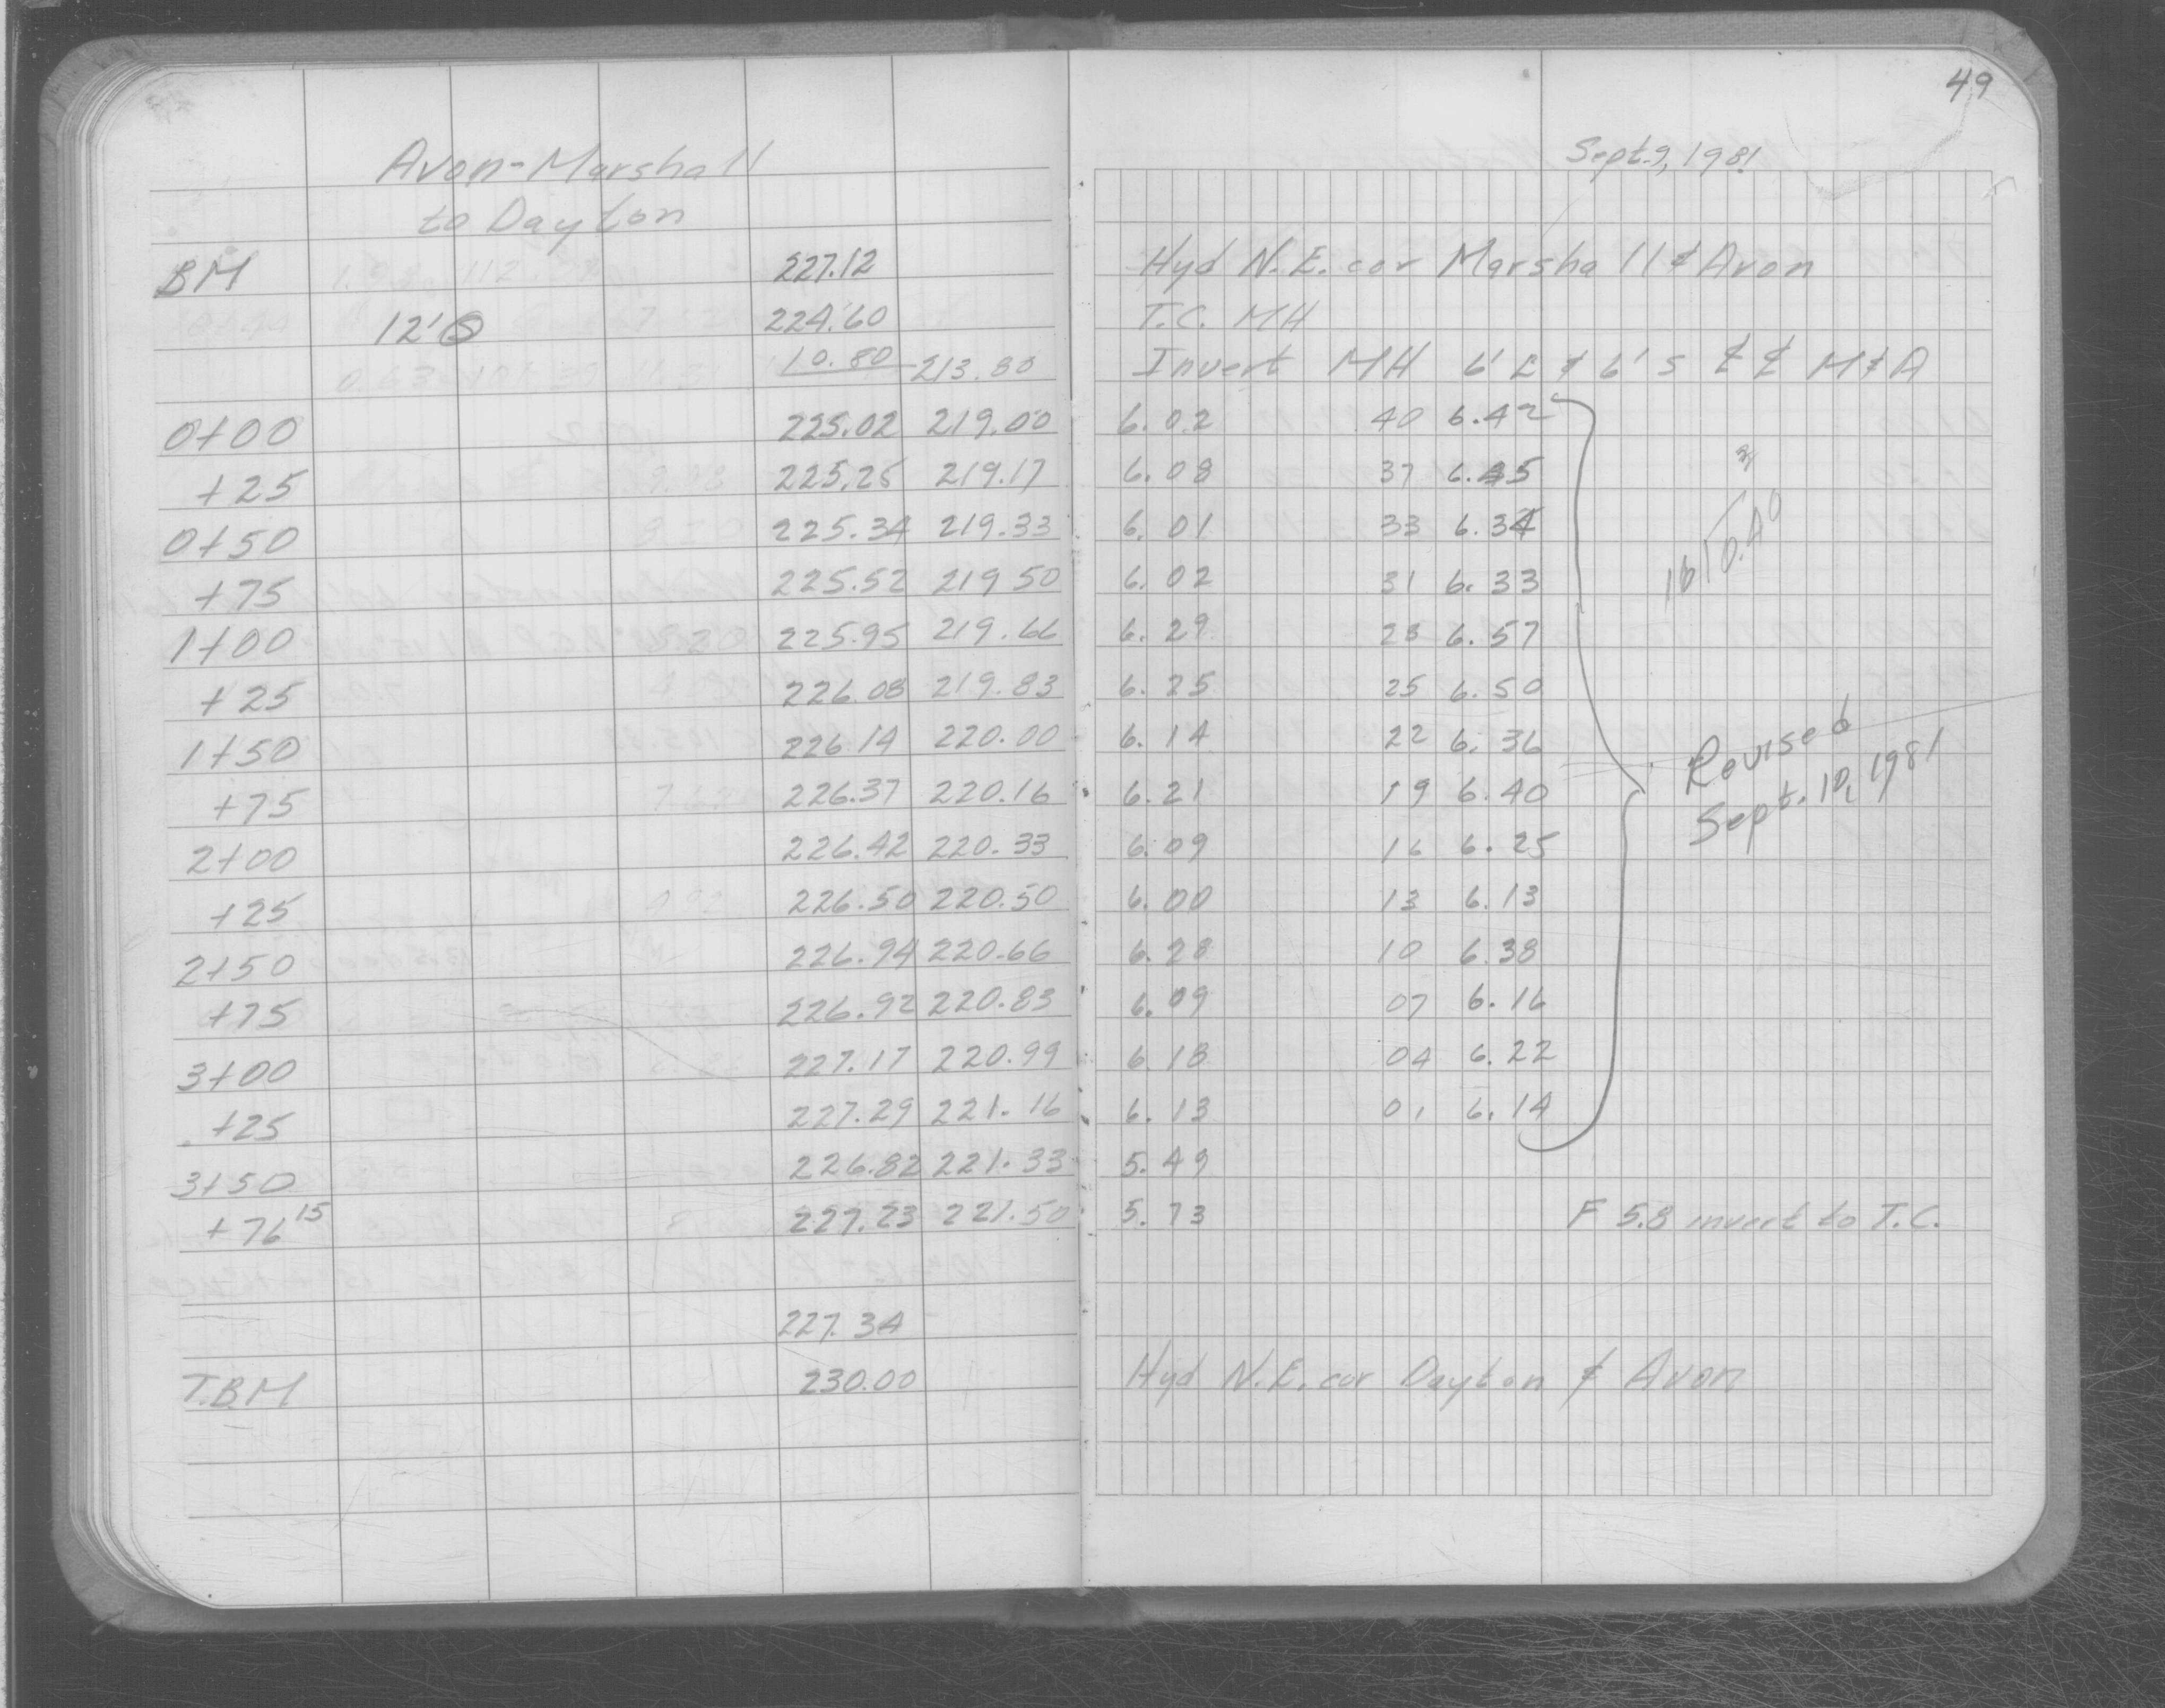 49
Avon-Marshall
to Dayton
Sept. 9, 1981
BM 227.12 Hyd N.E. cor Marshall & Avon
12' S 224.60 T.C. MH
10.80 213.80 Invert MH 6' E & 6' S ⅊ ⅊ M & A
0+00 225.02 219.00 6.02 40 6.42
+25 225.25 219.17 6.08 37 6.45
0+50 225.34 219.33 6.01 33 6.34
+75 225.52 219.50 6.02 31 6.33
1+00 225.95 219.66 6.29 28 6.57
+25 226.08 219.83 6.25 25 6.50
1+50 226.14 220.00 6.14 22 6.36
+75 226.37 220.16 6.21 19 6.40
2+00 226.42 220.33 6.09 16 6.25
+25 226.50 220.50 6.00 13 6.13
2+50 226.94 220.66 6.28 10 6.38
+75 226.92 220.83 6.09 07 6.16
3+00 227.17 220.99 6.18 04 6.22
+25 227.29 221.16 6.13 01 6.14
3+50 226.82 221.33 5.49
+76 15 227.23 221.50 5.73 F 5.8 invert to T.C.
227.34
T.B.M 230.00 Hyd N.E. cor Dayton & Avon
16 0.40
Revised
Sept. 10, 1981